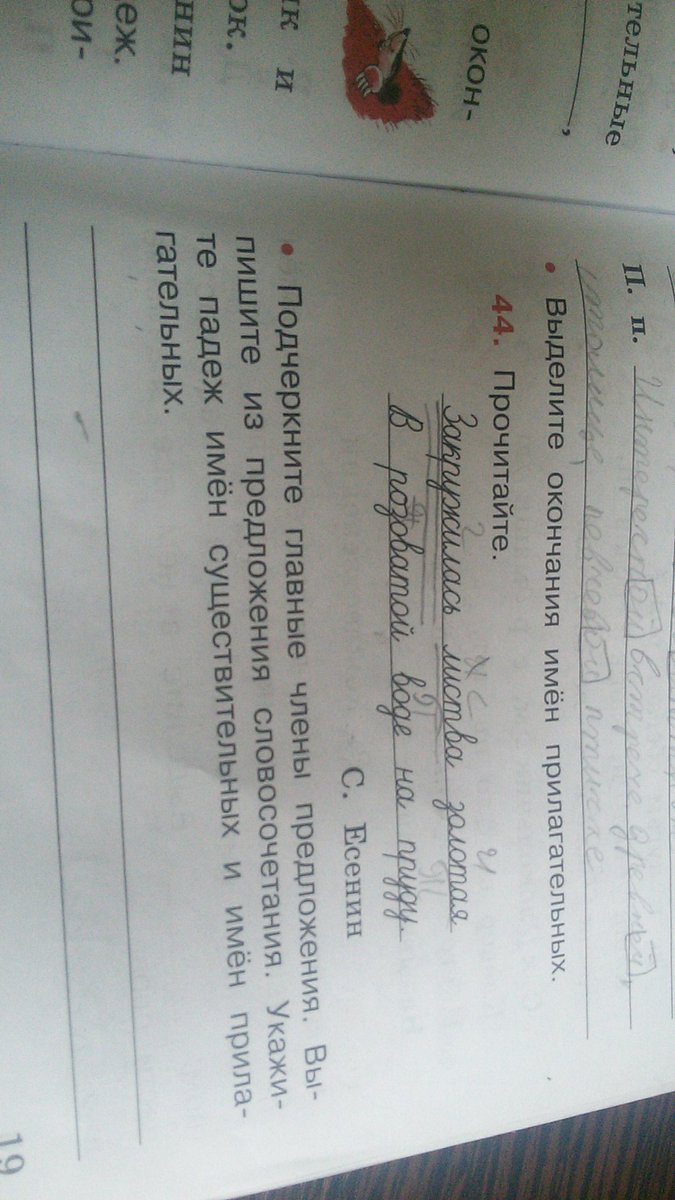 тельные
окон-
,
к и
ок.
нин
еж.
ои-
П. п. Интересной
древней,
певчей птичке
• Выделите окончания имён прилагательных.
44. Прочитайте.
Закружилась листва золотая
В розоватой воде на пруду.
С. Есенин
• Подчеркните главные члены предложения. Вы-
пишите из предложения словосочетания. Укажи-
те падеж имён существительных и имён прила-
гательных.
19